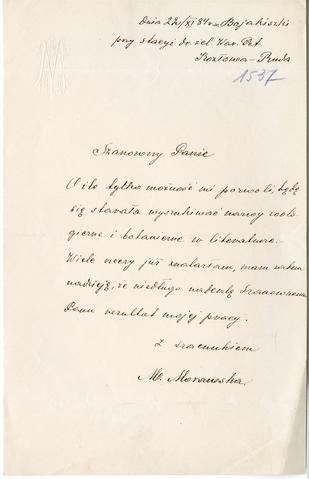 Dnia 22/XI 84 r. w Bojakiszki
przy stacyi dr. żel. War. Pet.
Kozłowa-Ruda
1537
Szanowny Panie
O ile tylko możność mi pozwoli, będę
się starała wyszukiwać nazwy zoolo
giczne i botaniczne w literaturze.
Wiele rzeczy już znalazłam, mam zatem
nadzieję, że niedługo nadeślę Szanownemu
Panu rezultat mojej pracy.
Z szacunkiem
M. Morawska